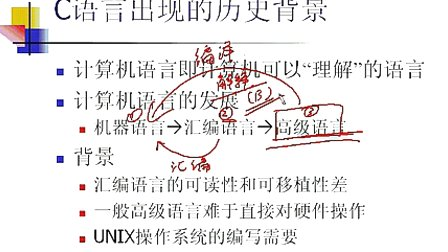 C语言出现的历史背景
计算机语言即计算机可以“理解”的语言
编译
解释
计算机语言的发展
(B)
① ② ③
机器语言→汇编语言→高级语言
汇编
背景
汇编语言的可读性和可移植性差
一般高级语言难于直接对硬件操作
UNIX操作系统的编写需要